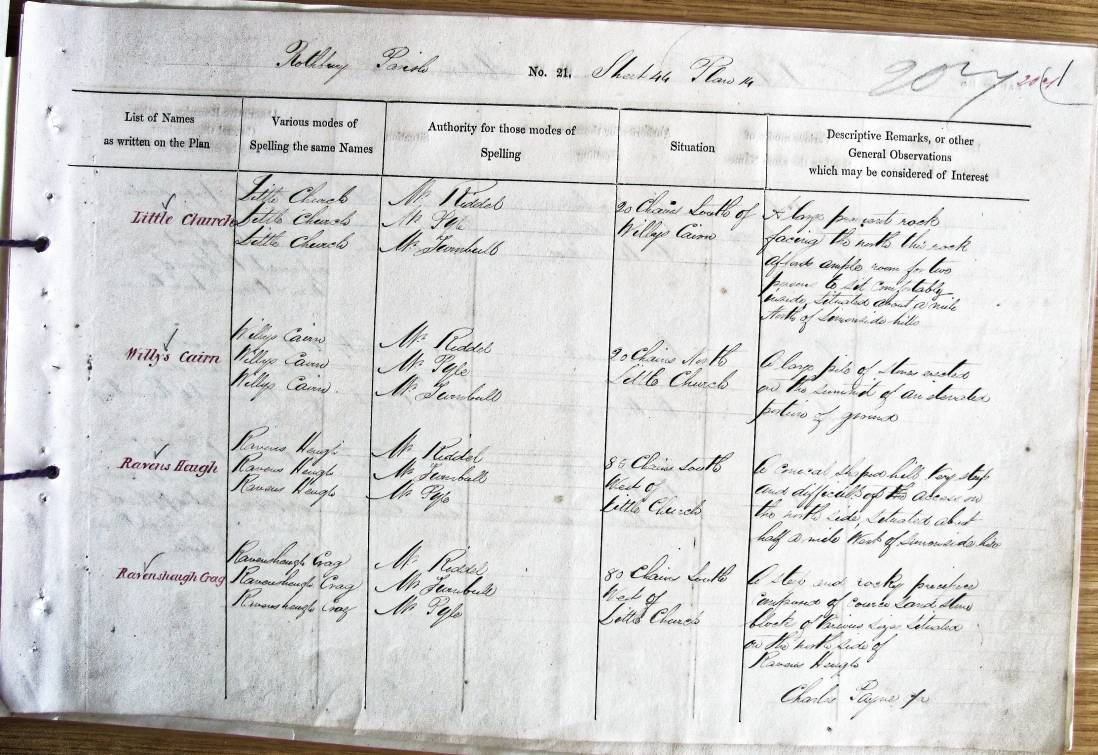 Rothbury Parish No. 21. Sheet 44 Plan 14
List of Names
as written on the Plan
Various modes of
Spelling the same Names
Authority for those modes of
Spelling
Situation
Descriptive Remarks, or other
General Observations
which may be considered of Interest
Little Church
Little Church
Little Church
Little Church
Mr. Riddel
Mr. Pyle
Mr. Turnbull
20 Chains South of
Willys Cairn
A large rock
facing the north this rock
affords ample room for two
persons to sit comfortably
inside, Situated about a mile
North of Simonside hills
Willy's Cairn
Willys Cairn
Willys Cairn
Willys Cairn
Mr. Riddel
Mr. Pyle
Mr. Turnbull
20 Chains North
Little Church
A large pile of stones erected
on the Summit of an elevated
portion of ground
Ravens Heugh
Ravens Heugh
Ravens Heugh
Ravens Heugh
Mr. Riddel
Mr. Turnbull
Mr. Pyle
85 Chains South
West of
Little Church
A conical shaped hill Very steep
and difficult of access on
the north side, Situated about
half a mile West of Simonside hill
Ravensheugh Crag
Ravensheugh Crag
Ravensheugh Crag
Ravensheugh Crag
Mr. Riddel
Mr. Turnbull
Mr. Pyle
80 Chains South
West of
Little Church
A steep and rocky precipice
composed of course Sand stone
block of Various Sizes Situated
on the north side of
Ravens Heugh
Charles Payne